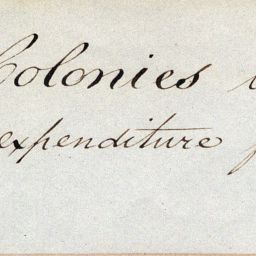 Colonies
expenditure